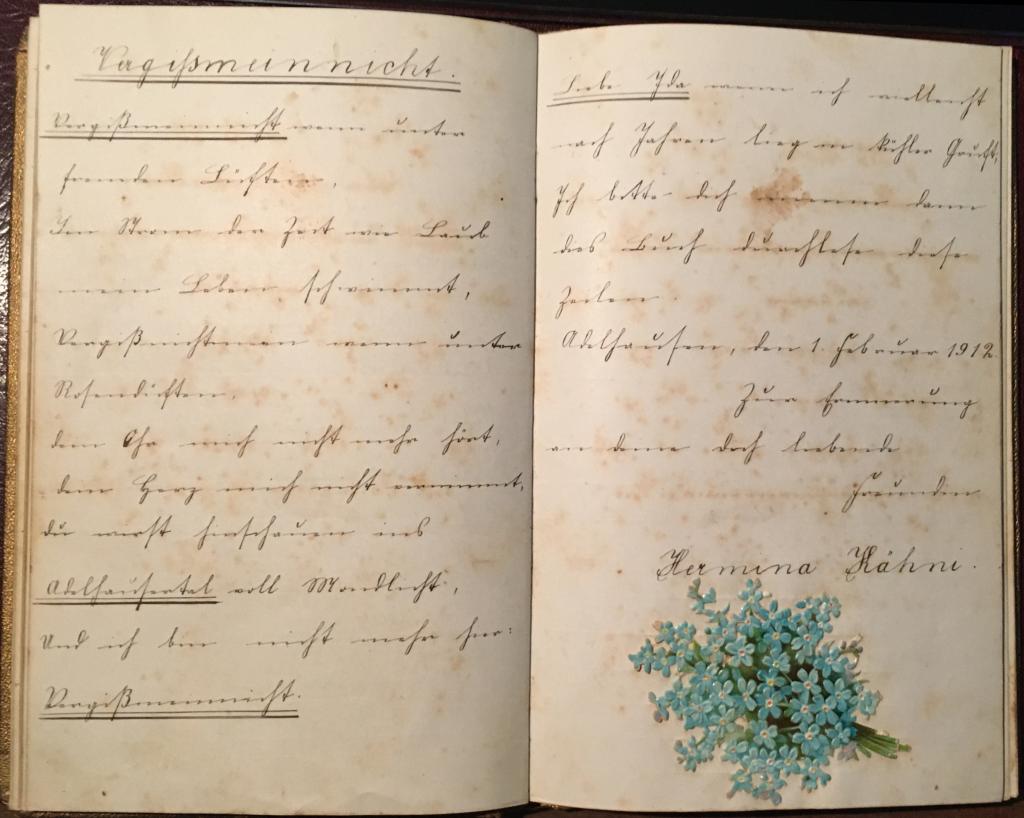 Vergißmeinnicht.
Vergißmeinnicht wenn unter
fremden Lüften,
Im Strom der Zeit wie Laub
mein Leben schwimmt,
Vergißnichtmein wenn unter
Rosendüften,
dein Ohr mich nicht mehr hört,
dein Herz mich nicht vernimmt,
du wirst hinschauen ins
Adelhausertal voll Mondlicht,
Und ich bin nicht mehr hier:
Vergißmeinnicht.
Liebe Ida wenn ich vielleicht
nach Jahren lieg in kühler Gruft,
Ich bitte dich nimm dann
dies Buch durchlese diese
Zeilen.
Adelhausen, den 1. Februar 1912
Zur Erinnerung
an deine dich liebende
Freundin
Hermina Kähni.